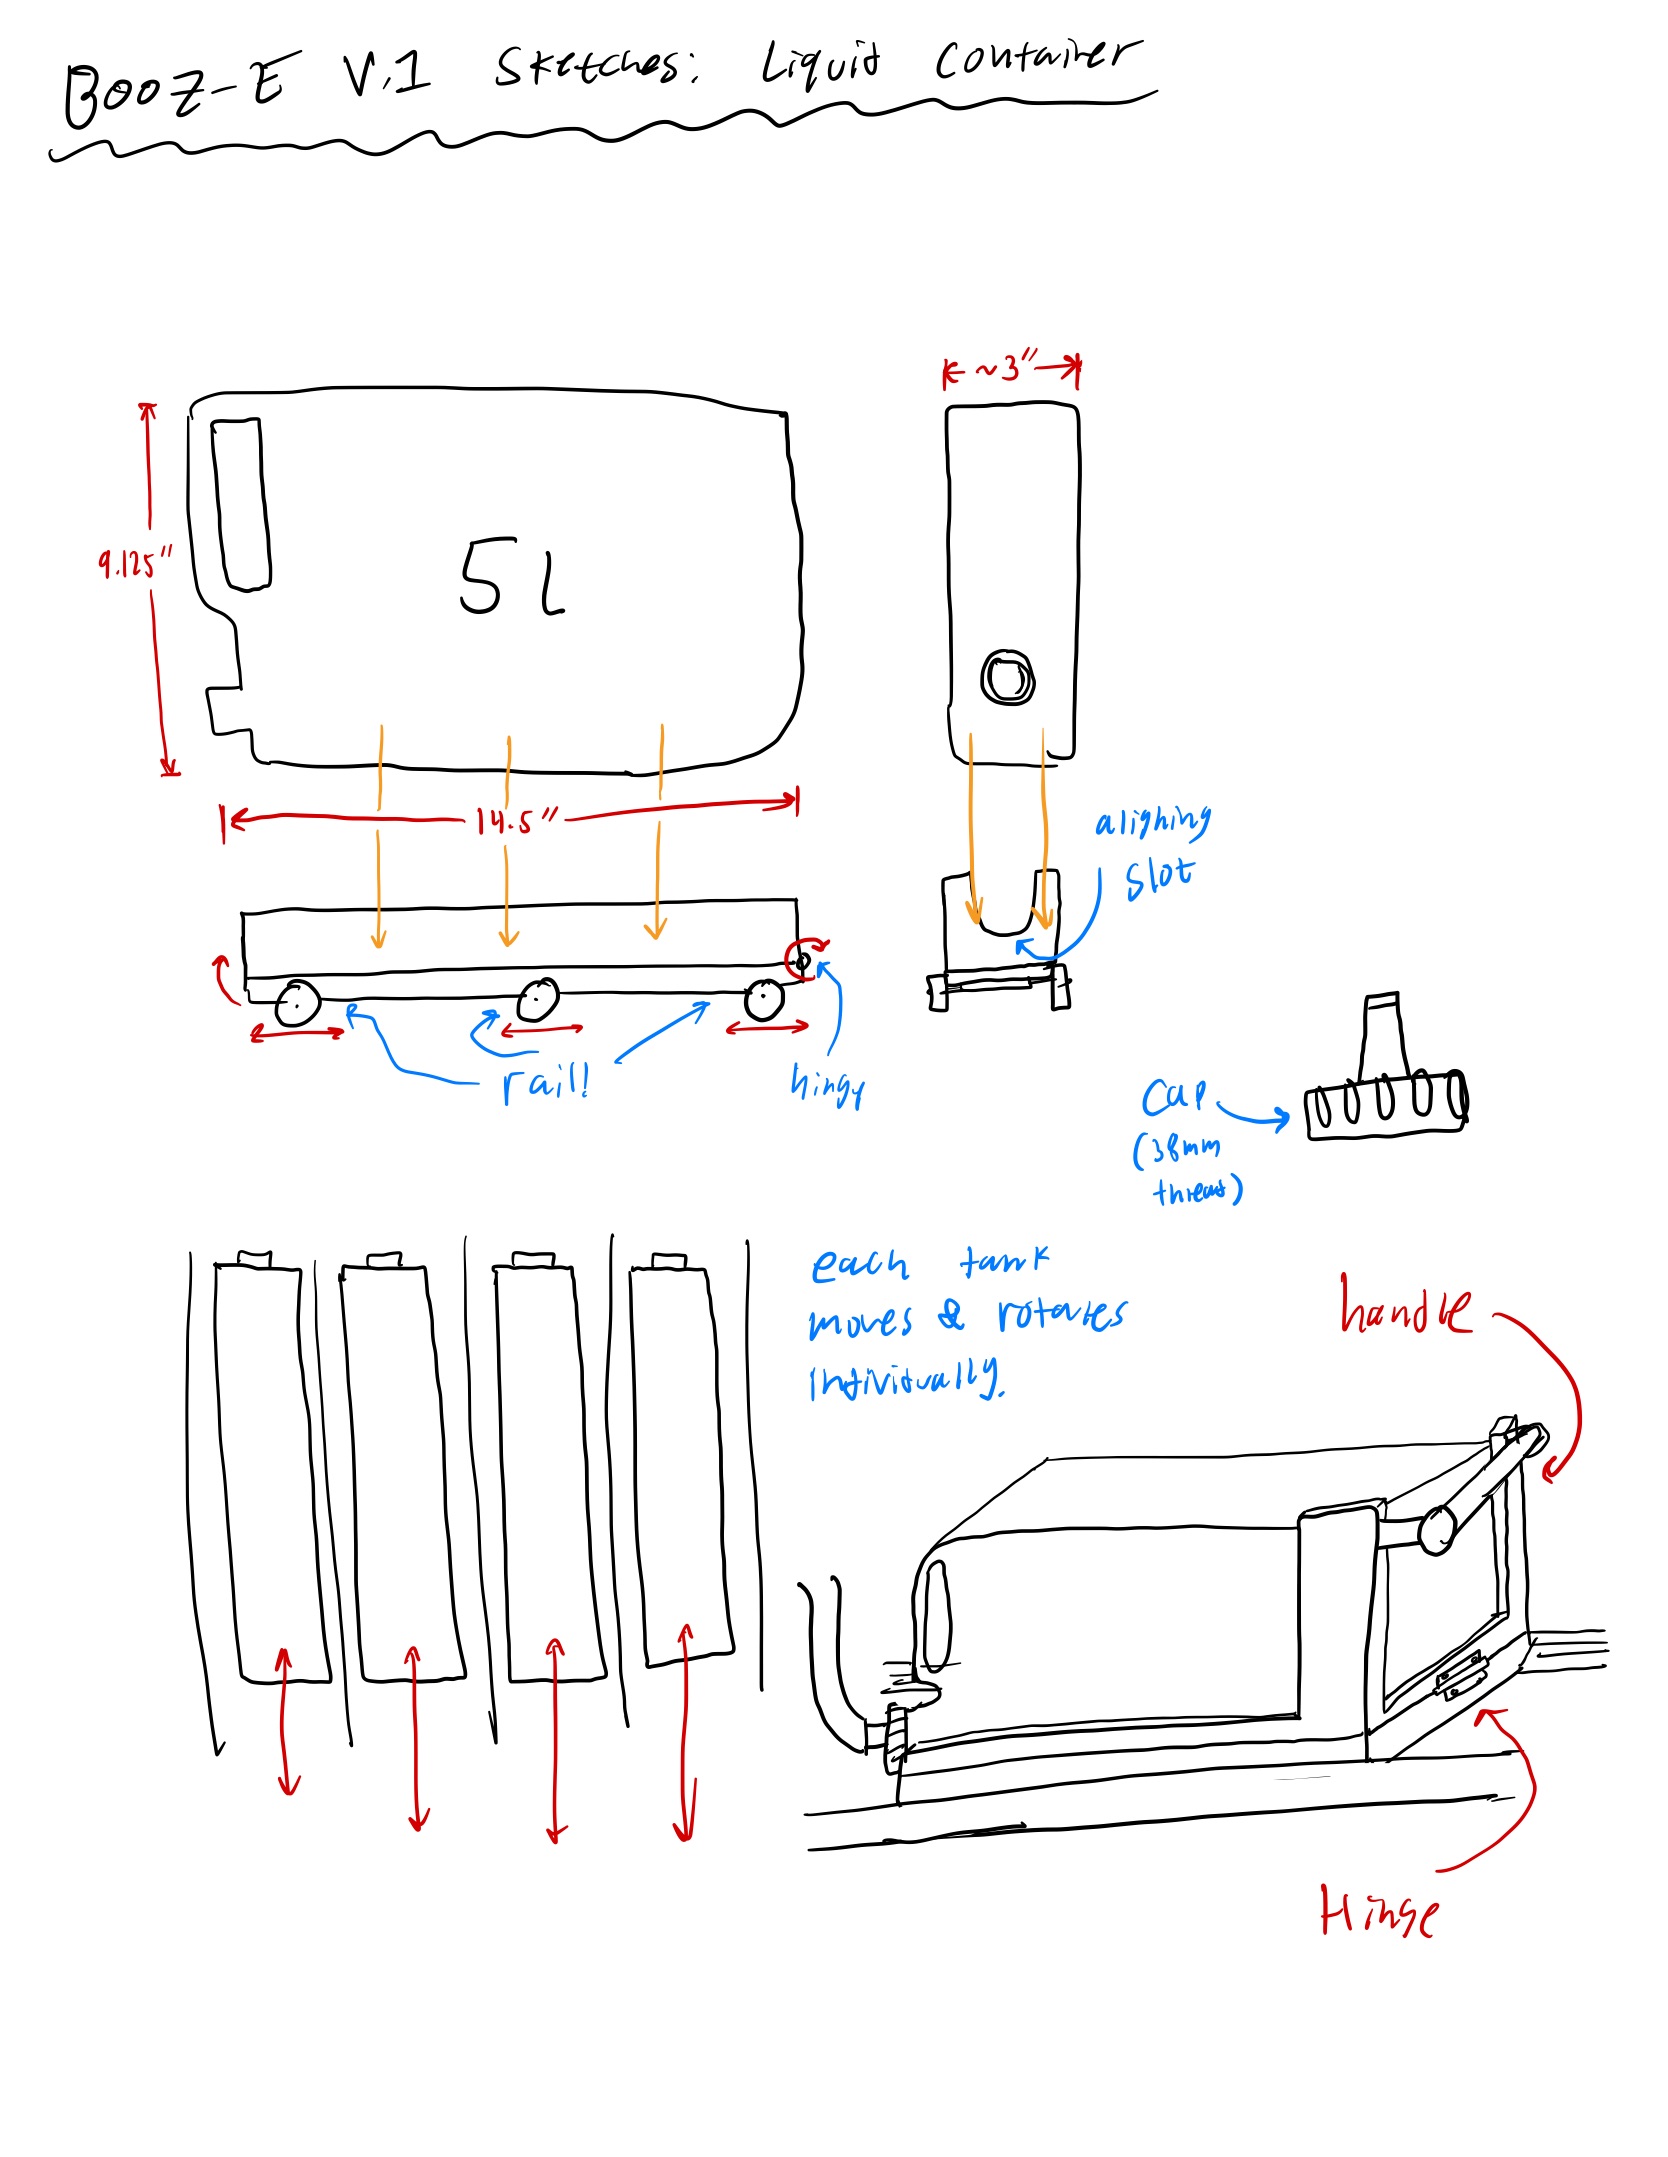 Booz-E V.1 Sketches: Liquid Container
~3"
9.125"
5L
14.5"
alighing
slot
rail!
hingy
Cap
(38mm
thread)
each tank
moves & rotates
individually.
handle
Hinge